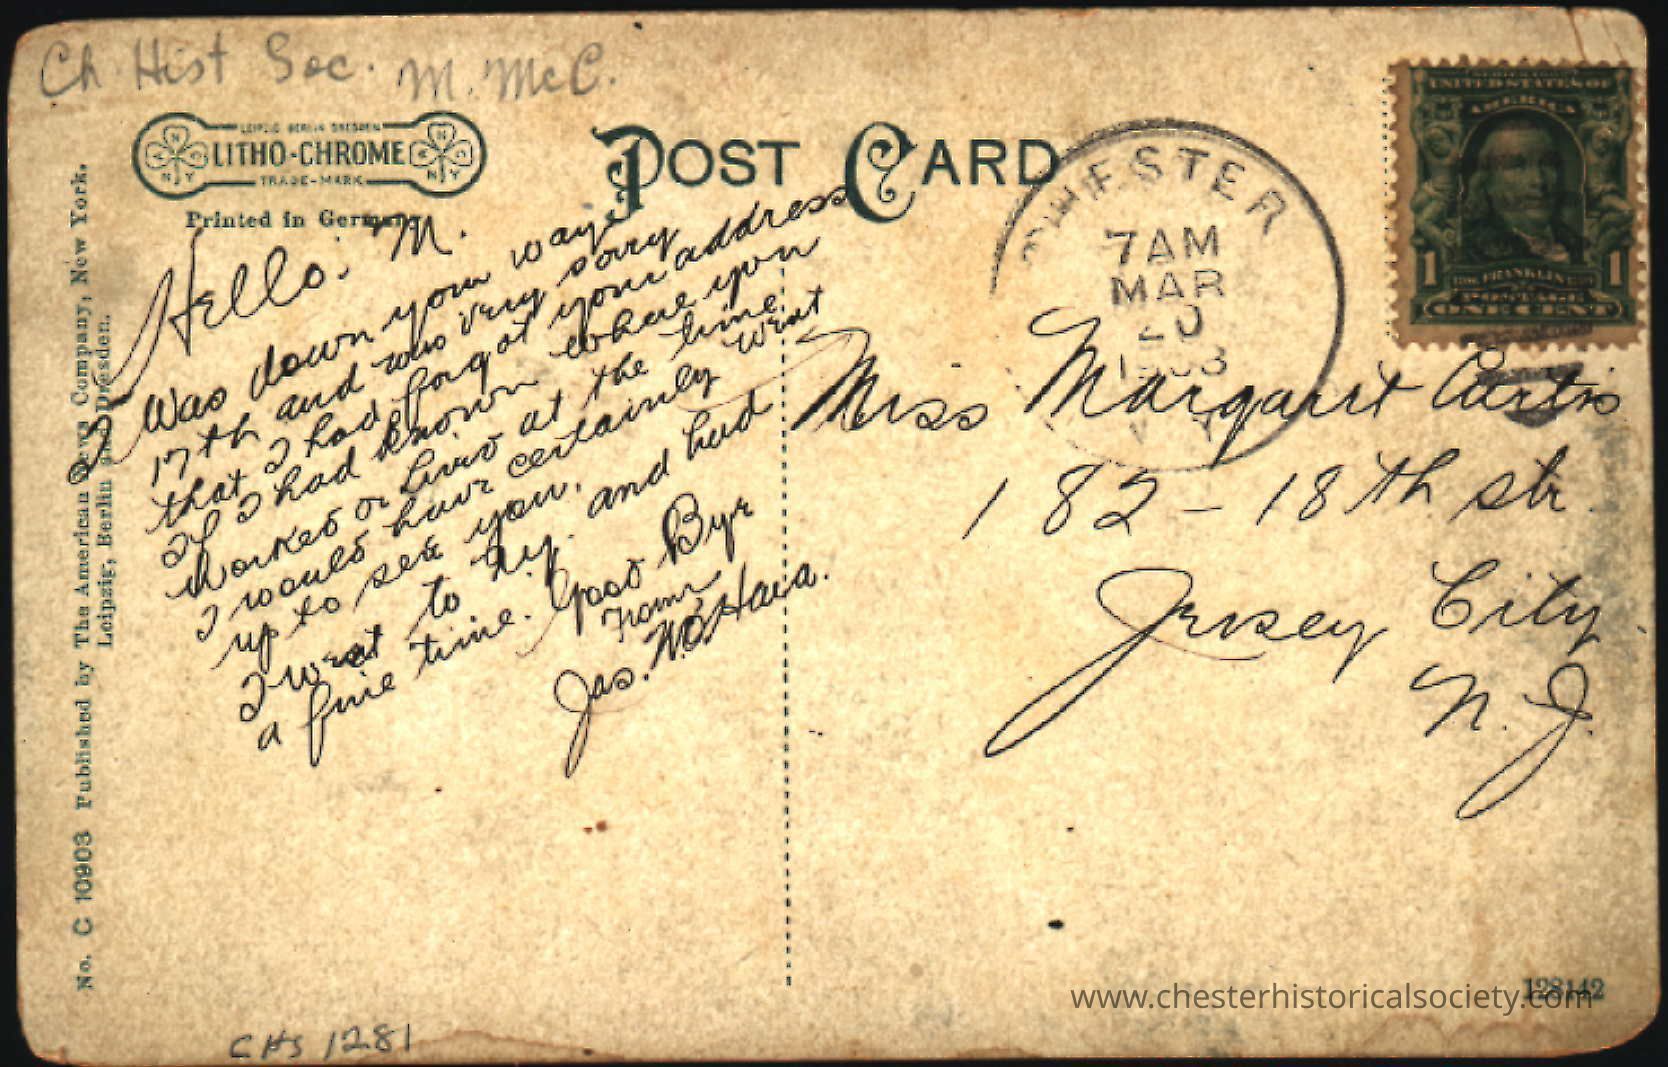 Ch. Hist Soc. M. McC.
LEIPZIG BERLIN DRESDEN
LITHO-CHROME
TRADE-MARK
Printed in Germany
POST CARD
No. C 10903 Published by The American News Company, New York.
Leipzig, Berlin and Dresden.
Hello. M.
I Was down your way
17th and was very sorry
that I had forgot your address
If I had known where you
worked or lived at the time
I would have certainly went
up to see you.
I went to N.Y. and had
a fine time. Good Bye
From
Jas. W. O'Hara.
CHESTER
7 AM
MAR
20
N.Y.
UNITED STATES OF
AMERICA
1 FRANKLIN 1
POSTAGE
ONE CENT
Miss Margaret Curtis
182 - 18th str.
Jersey City
N. J.
128142
www.chesterhistoricalsociety.com
CHS 1281